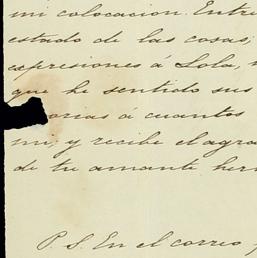 mi colocacion. Entre
estado de las cosas;
expresiones á Lola,
que he sentido sus
orias á cuantos
mi, y recibe el agra
de tu amante her
P. S. En el correo